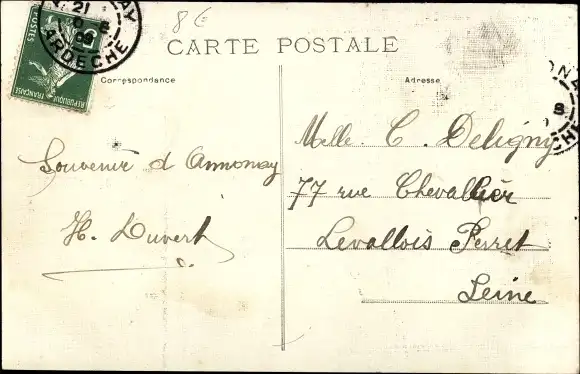 8 €
CARTE POSTALE
Correspondance
Adresse
POSTES
REPUBLIQUE FRANÇAISE
21
8
ARDECHE
Souvenir d Annonay
H. Duvert
Melle. C. Deligny
77 rue Chevallier
Levallois Perret
Seine